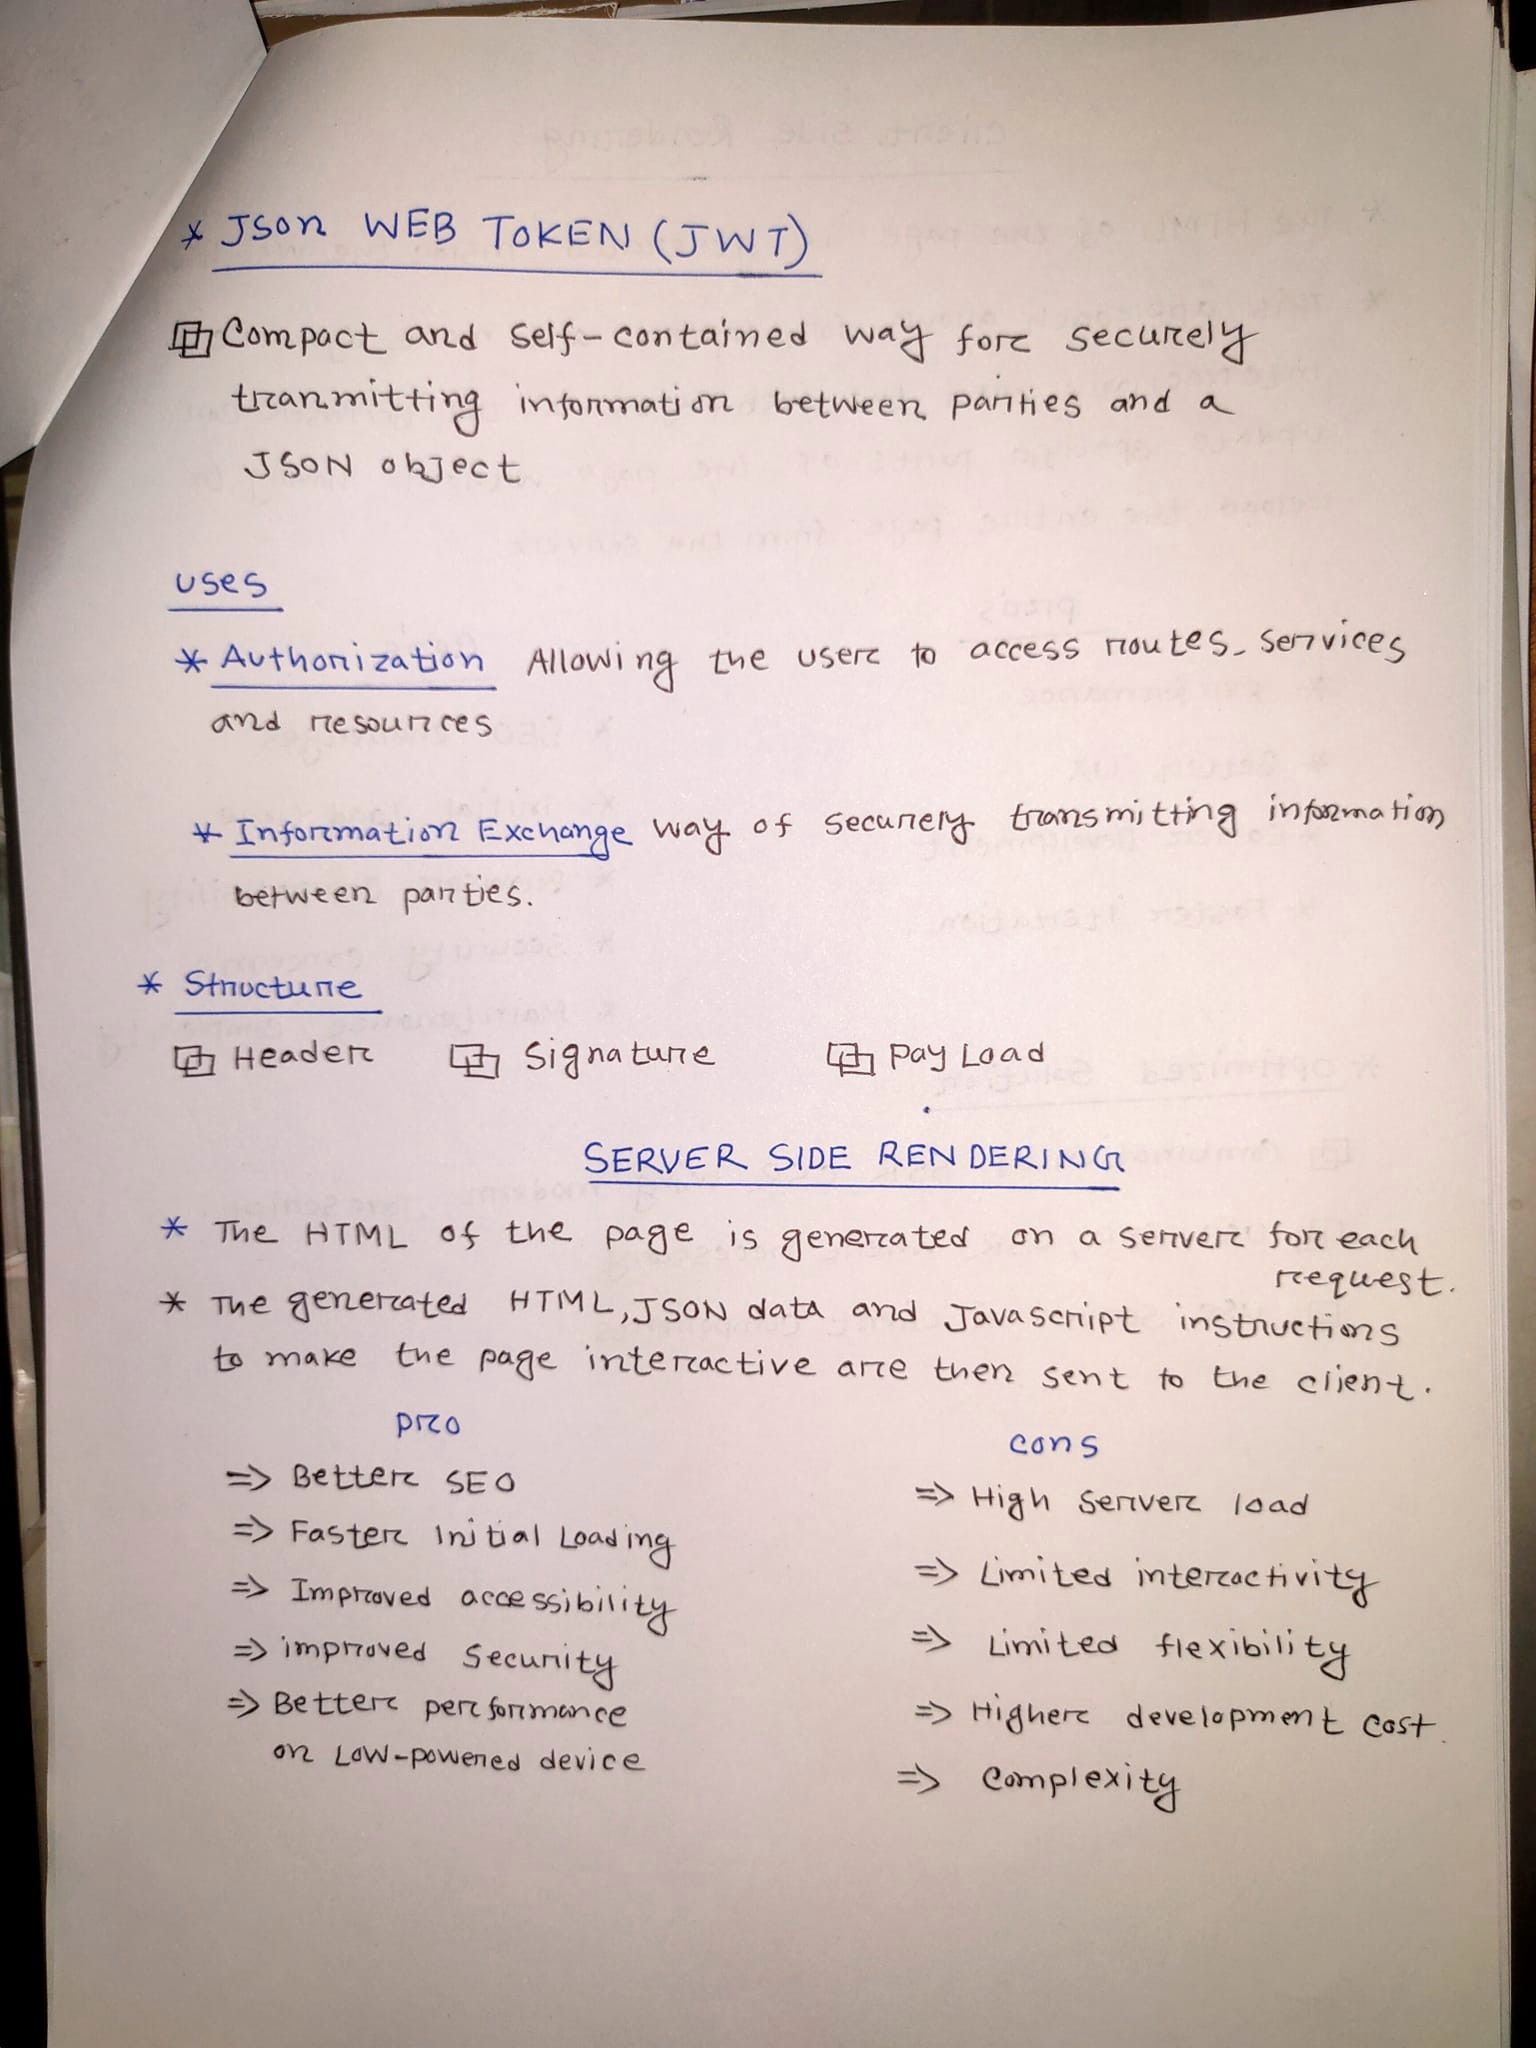 * JSon WEB TOKEN (JWT)
Compact and self-contained way for securely
tranmitting information between parties and a
JSON object
uses
* Authorization Allowing the user to access routes, services
and resources
* Information Exchange way of securely transmitting information
between parties.
* Structure
Header Signature Pay Load
SERVER SIDE RENDERING
* The HTML of the page is generated on a server for each
request.
* The generated HTML, JSON data and Javascript instructions
to make the page interactive are then sent to the client.
pro
=> Better SEO
=> Faster Initial Loading
=> Improved accessibility
=> improved Security
=> Better performance
on Low-powered device
cons
=> High server load
=> Limited interactivity
=> Limited flexibility
=> Higher development cost.
=> Complexity